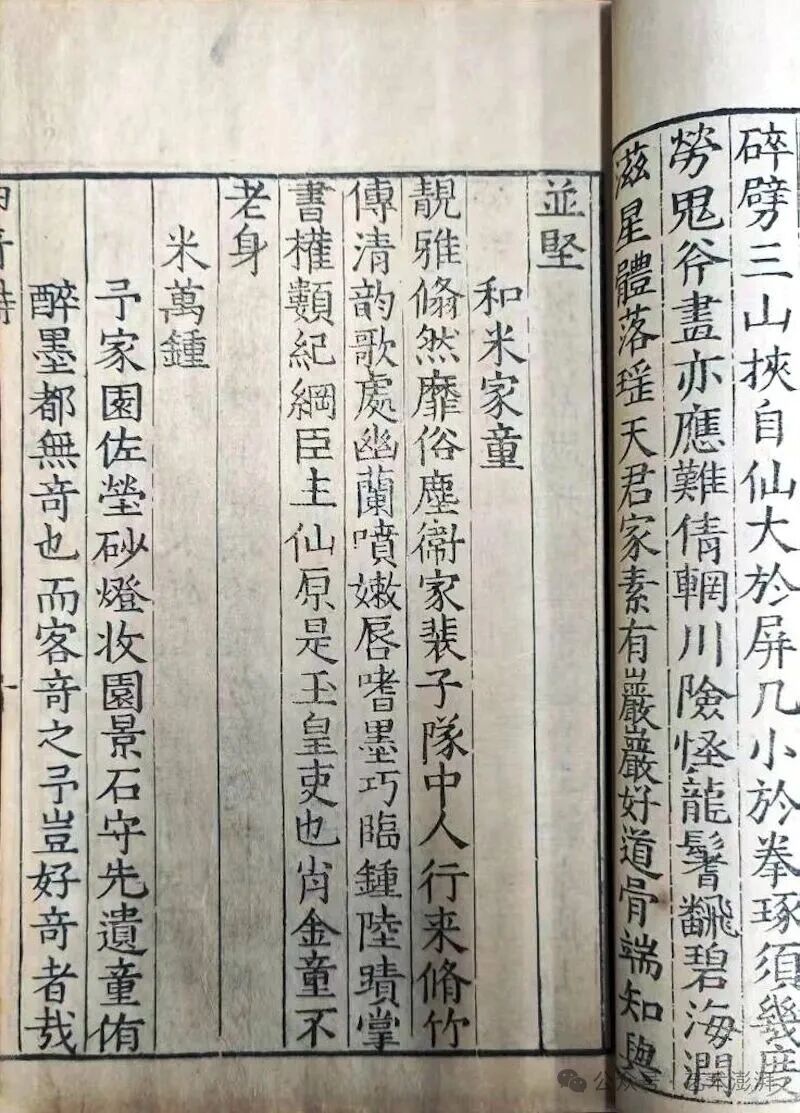 碎劈三山挾自仙大於屏几小於拳琢須幾度
勞鬼斧畫亦應難倩輞川險怪龍鬐飜碧海澗
滋星體落瑤天君家素有巖巖好道骨端知與
並堅
和米家童
靚雅翛然靡俗塵衞家裴子隊中人行来脩竹
傳清韵歌處幽蘭噴嫩唇嗜墨巧臨鍾陸蹟掌
書權類紀綱臣主仙原是玉皇吏也肖金童不
老身
米萬鍾
予家園佐瑩砂燈收園景石守先遺童侑
醉墨都無竒也而客竒之予豈好竒者哉
公众号·艺术澎湃